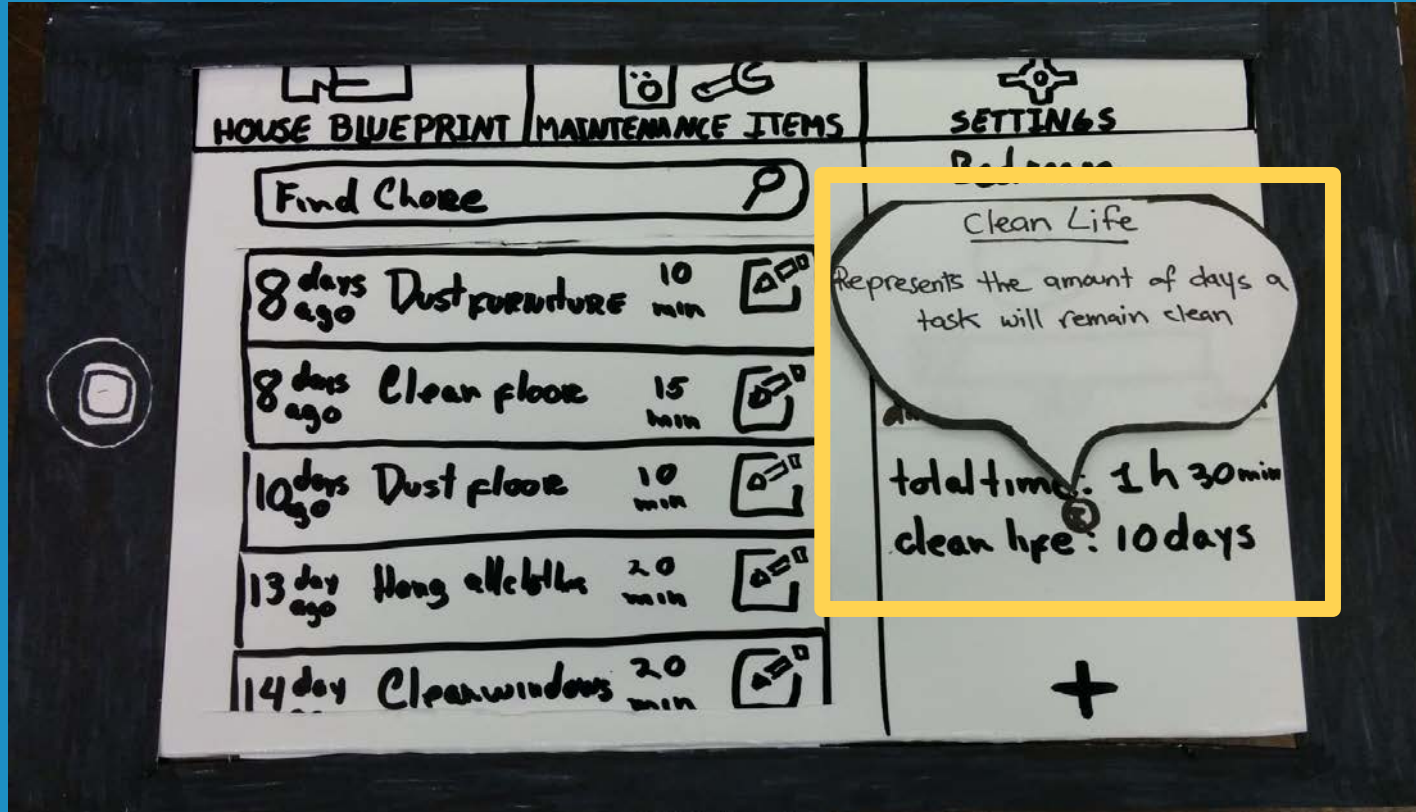 HOUSE BLUEPRINT
MAINTENANCE ITEMS
SETTINGS
Find Chore
8 days ago Dust furniture 10 min
8 days ago Clean floor 15 min
10 days ago Dust floor 10 min
13 day ago Hang all cloths 20 min
14 day Clean windows 20 min
Bedroom
Clean Life
Represents the amount of days a
task will remain clean
total time: 1 h 30 min
clean life: 10 days
+